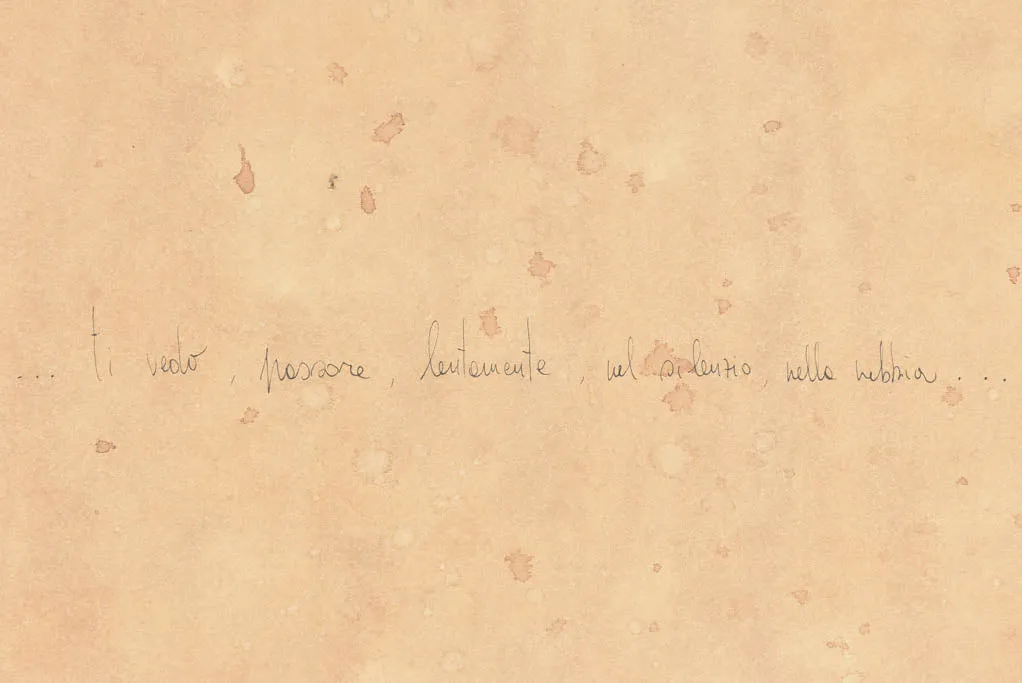 ... ti vedo, passare, lentamente, nel silenzio, nella nebbia...